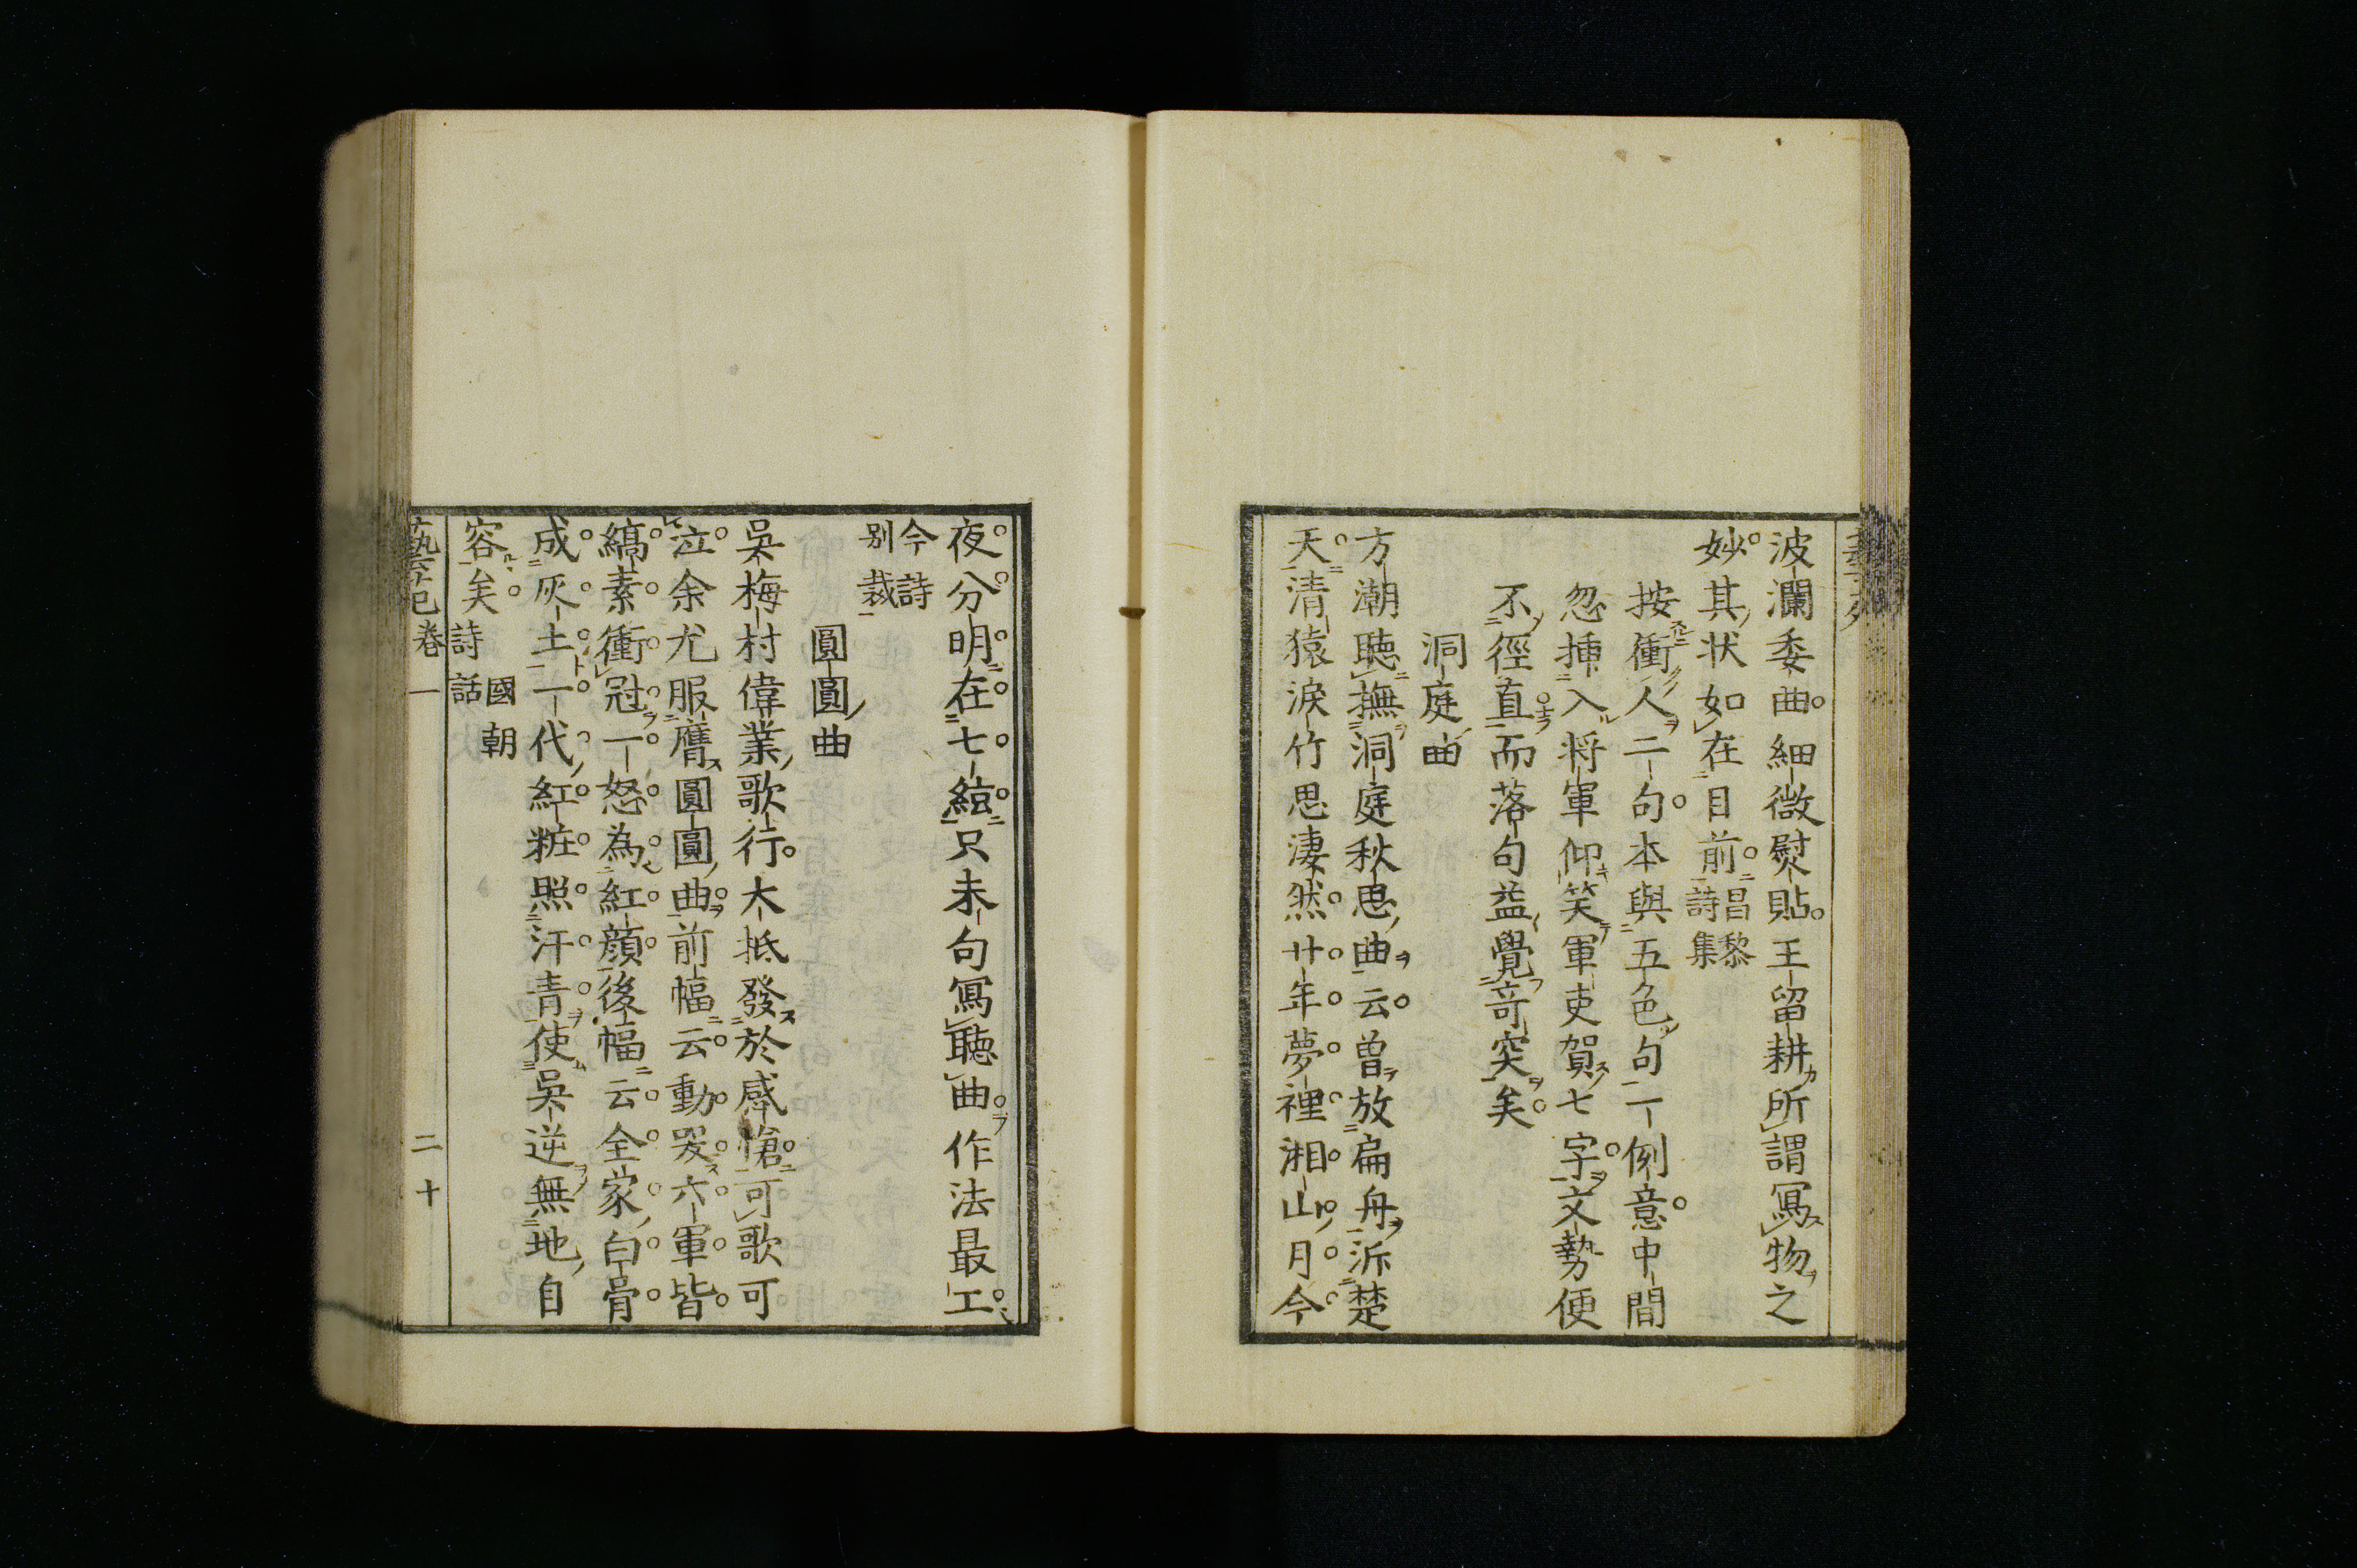 波瀾委曲細微熨貼王留耕所謂寫物之
妙其状如在目前昌黎
詩集
按衝人二句本與五色句一例意中間
忽揷入将軍仰笑軍吏賀七字文勢便
不徑直而落句益覺竒突矣
洞庭曲
方潮聴撫洞庭秋思曲云曽放扁舟泝楚
天清猿淚竹思淒然廿年夢裡湘山月今
夜分明在七絃只未句寫聴曲作法最工
今詩
别裁
圓圓曲
吳梅村偉業歌行大抵發於感愴可歌可
泣余尤服膺圓圓曲前幅云動哭六軍皆
縞素衝冠一怒為紅顔後幅云全家白骨
成灰土一代紅粧照汗青使吳逆無地自
容矣國朝
詩話
藝苑卷一 二十